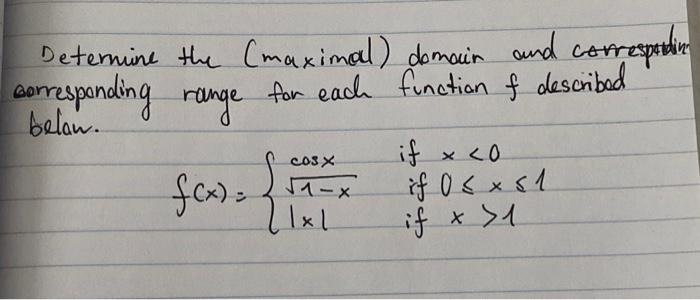 Determine the (maximal) domain and correspondin
corresponding range for each function f described
below.
f(x) = { cosx if x < 0
√1-x if 0 ≤ x ≤ 1
|x| if x > 1